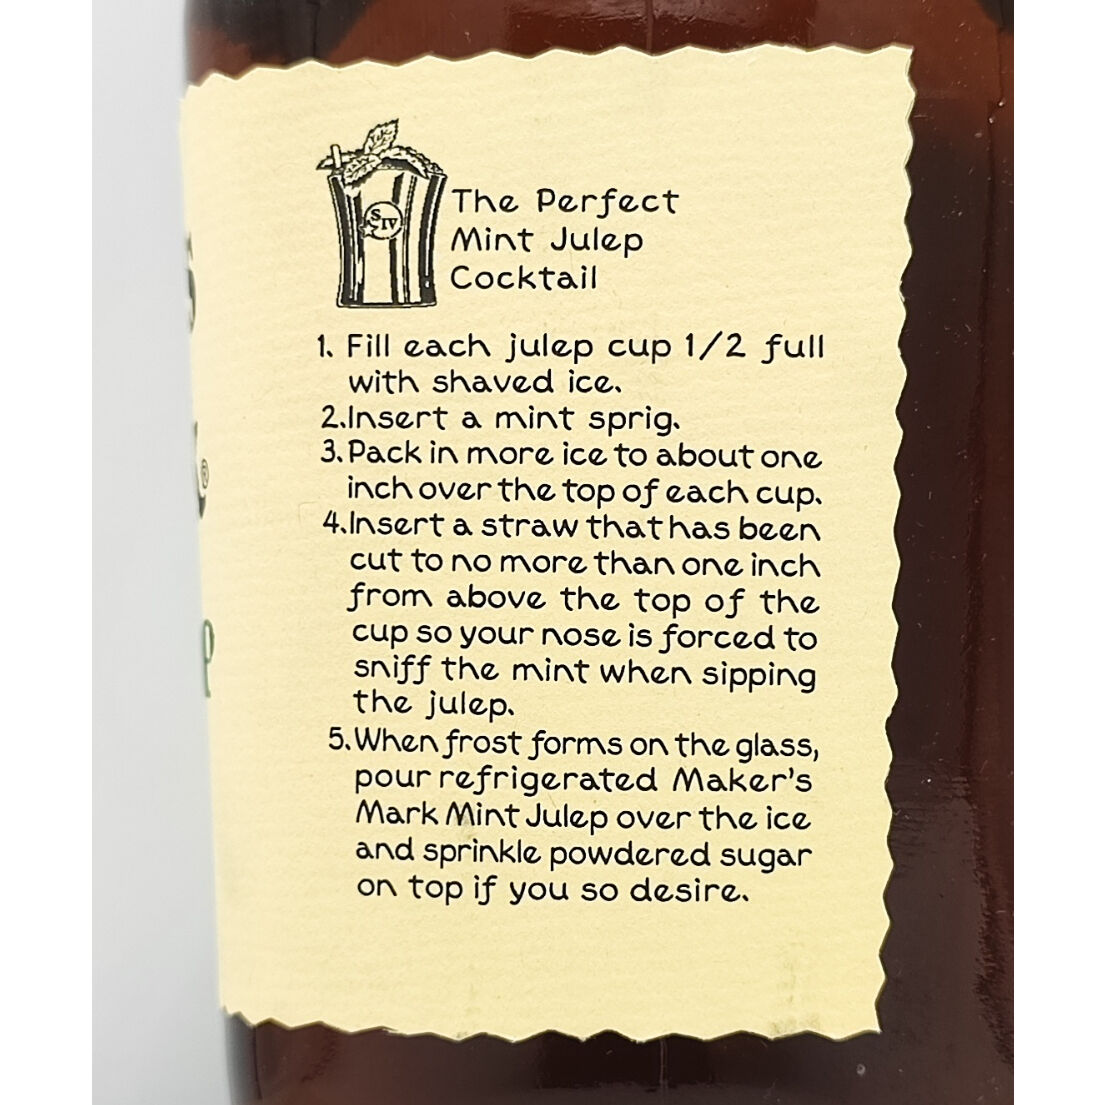 S IV
The Perfect
Mint Julep
Cocktail
1. Fill each julep cup 1/2 full
with shaved ice.
2.Insert a mint sprig.
3.Pack in more ice to about one
inch over the top of each cup.
4.Insert a straw that has been
cut to no more than one inch
from above the top of the
cup so your nose is forced to
sniff the mint when sipping
the julep.
5.When frost forms on the glass,
pour refrigerated Maker's
Mark Mint Julep over the ice
and sprinkle powdered sugar
on top if you so desire.
®
p